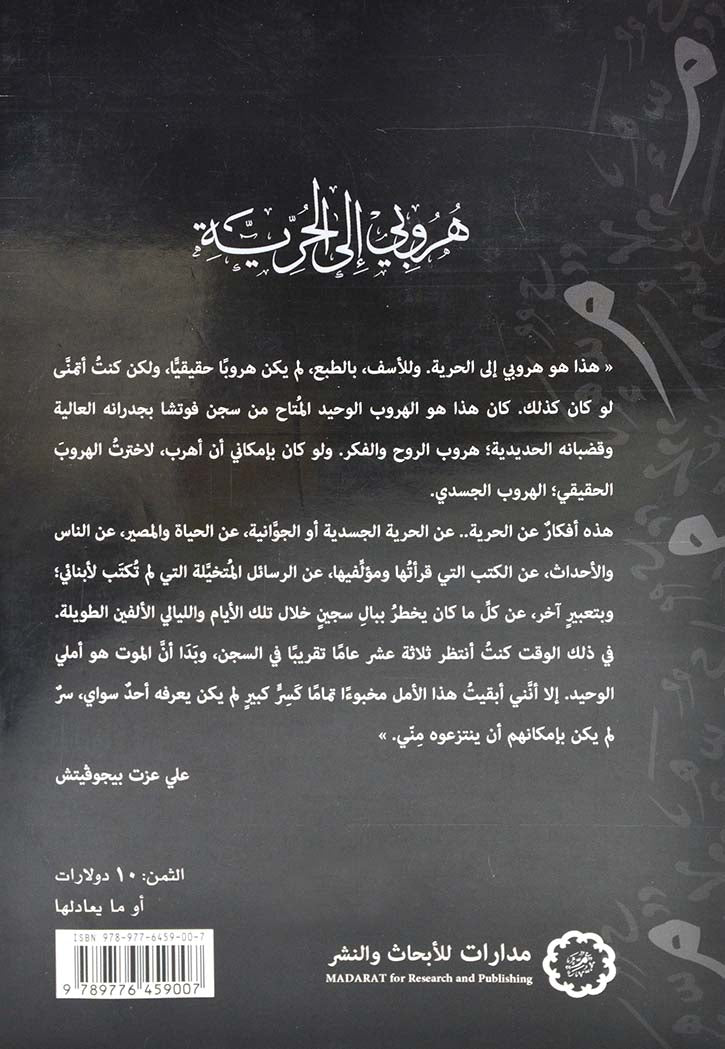 هُرُوبِي إِلَى الحُرِّيَّةِ
« هذا هو هروبي إلى الحرية. وللأسف، بالطبع، لم يكن هروبًا حقيقيًّا، ولكن كنتُ أتمنَّى
لو كان كذلك. كان هذا هو الهروب الوحيد المُتاح من سجن فوتشا بجدرانه العالية
وقضبانه الحديدية؛ هروب الروح والفكر. ولو كان بإمكاني أن أهرب، لاخترتُ الهروبَ
الحقيقي؛ الهروب الجسدي.
هذه أفكارٌ عن الحرية.. عن الحرية الجسدية أو الجوَّانية، عن الحياة والمصير، عن الناس
والأحداث، عن الكتب التي قرأتُها ومؤلِّفيها، عن الرسائل المُتخيَّلة التي لم تُكتَب لأبنائي؛
وبتعبيرٍ آخر، عن كلِّ ما كان يخطرُ ببالِ سجينٍ خلال تلك الأيام والليالي الألفين الطويلة.
في ذلك الوقت كنتُ أنتظر ثلاثة عشر عامًا تقريبًا في السجن، وبَدَا أنَّ الموت هو أملي
الوحيد. إلا أنَّني أبقيتُ هذا الأمل مخبوءًا تمامًا كَسِرٍّ كبيرٍ لم يكن يعرفه أحدٌ سواي، سرٌ
لم يكن بإمكانهم أن ينتزعوه مِنّي. »
علي عزت بيجوڤيتش
الثمن: ١٠ دولارات
أو ما يعادلها
ISBN 978-977-6459-00-7
9 789776 459007
مدارات للأبحاث والنشر
MADARAT for Research and Publishing